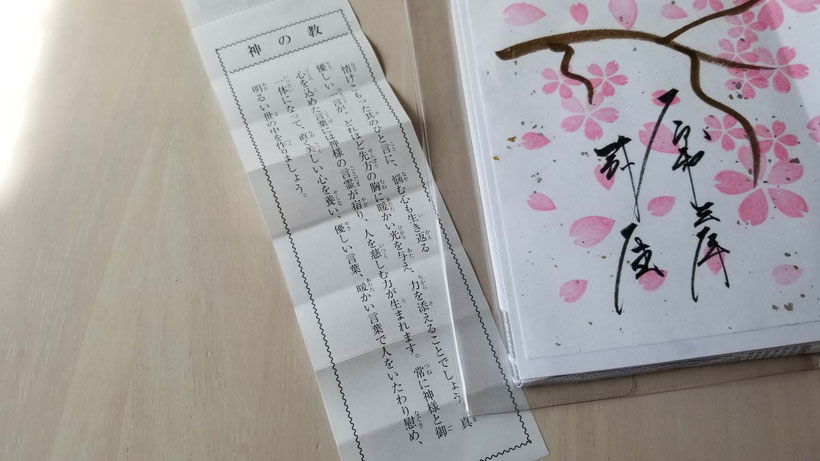 神の教
情けこもった其のひと言に、悩む心も生き返る
優しい一言が、どれほど先方の胸に暖かい光を与え、力を添えることでしょう。真
心を込めた言葉には神様の言霊が宿り、人を慈しむ力が生まれます。常に神様と御
一体になって、直く美しい心を養い、優しい言葉、暖かい言葉で人をいたわり慰め、
明るい世の中を作りましょう。